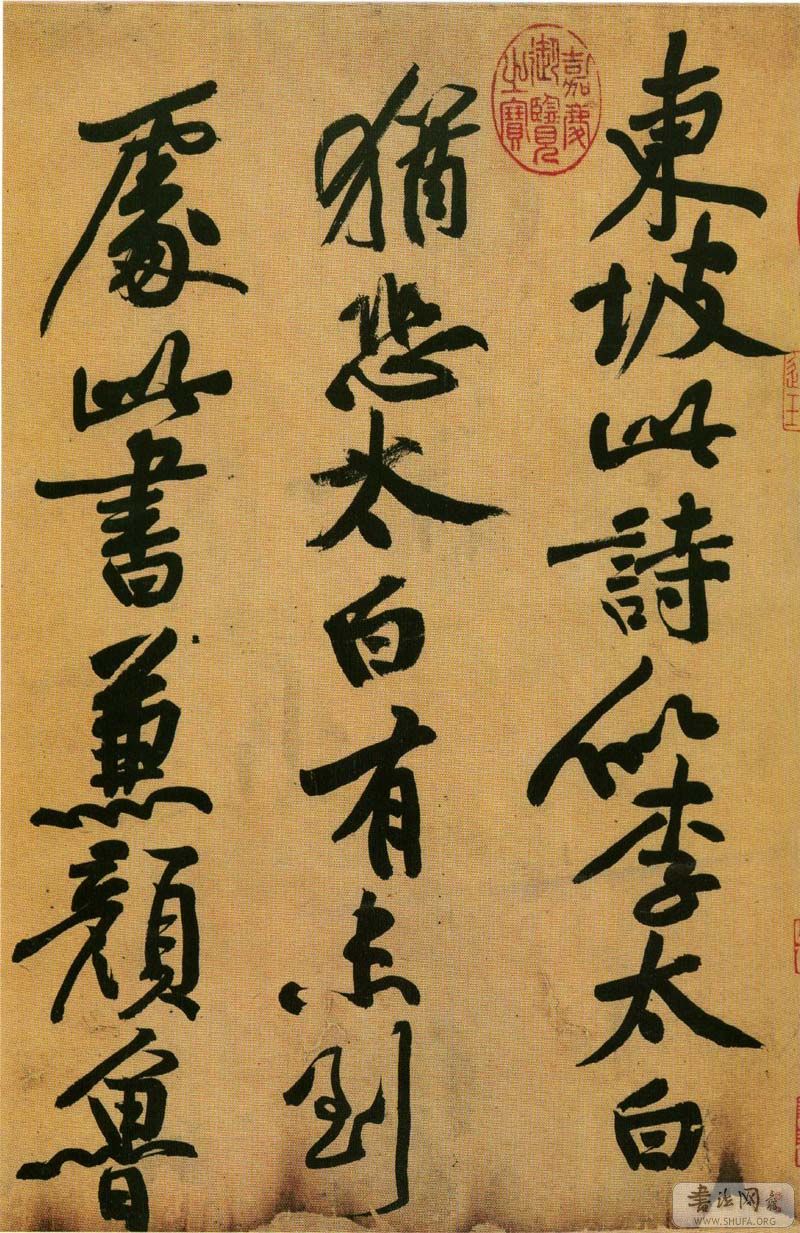 東坡此詩似李太白
猶恐太白有未到
處此書兼顏魯
嘉慶御覽之寶
書法网
WWW.SHUFA.ORG